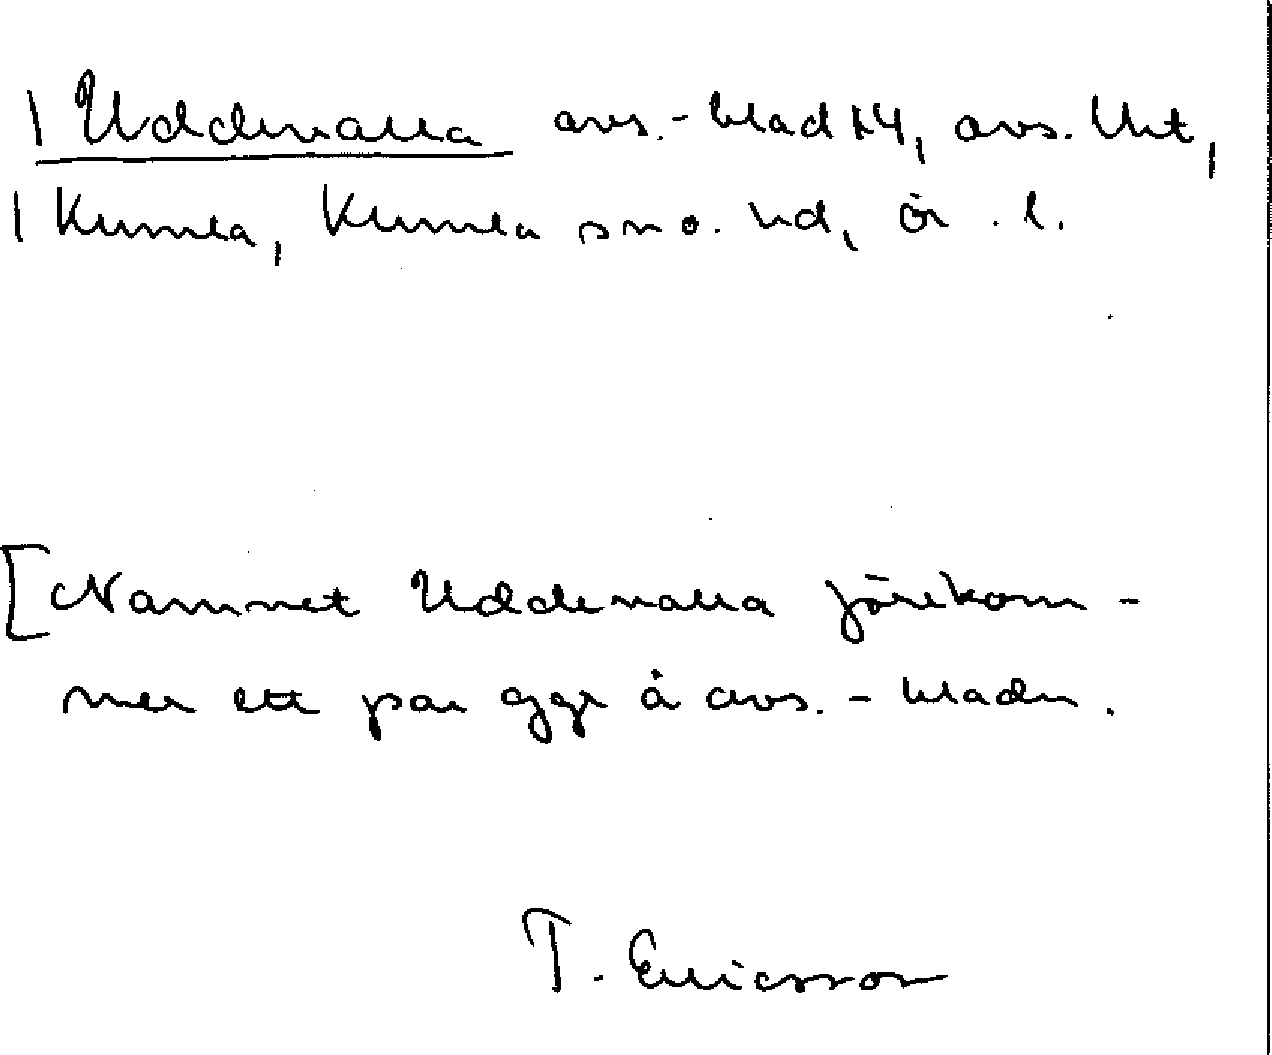 Uddevalla avs.-blad 14, avs. Ukt,
Kumla, Kumla sn o. hd, Ör. l.
[Namnet Uddevalla förekom-
mer ett par ggr å avs.-bladen.
T. Ericsson